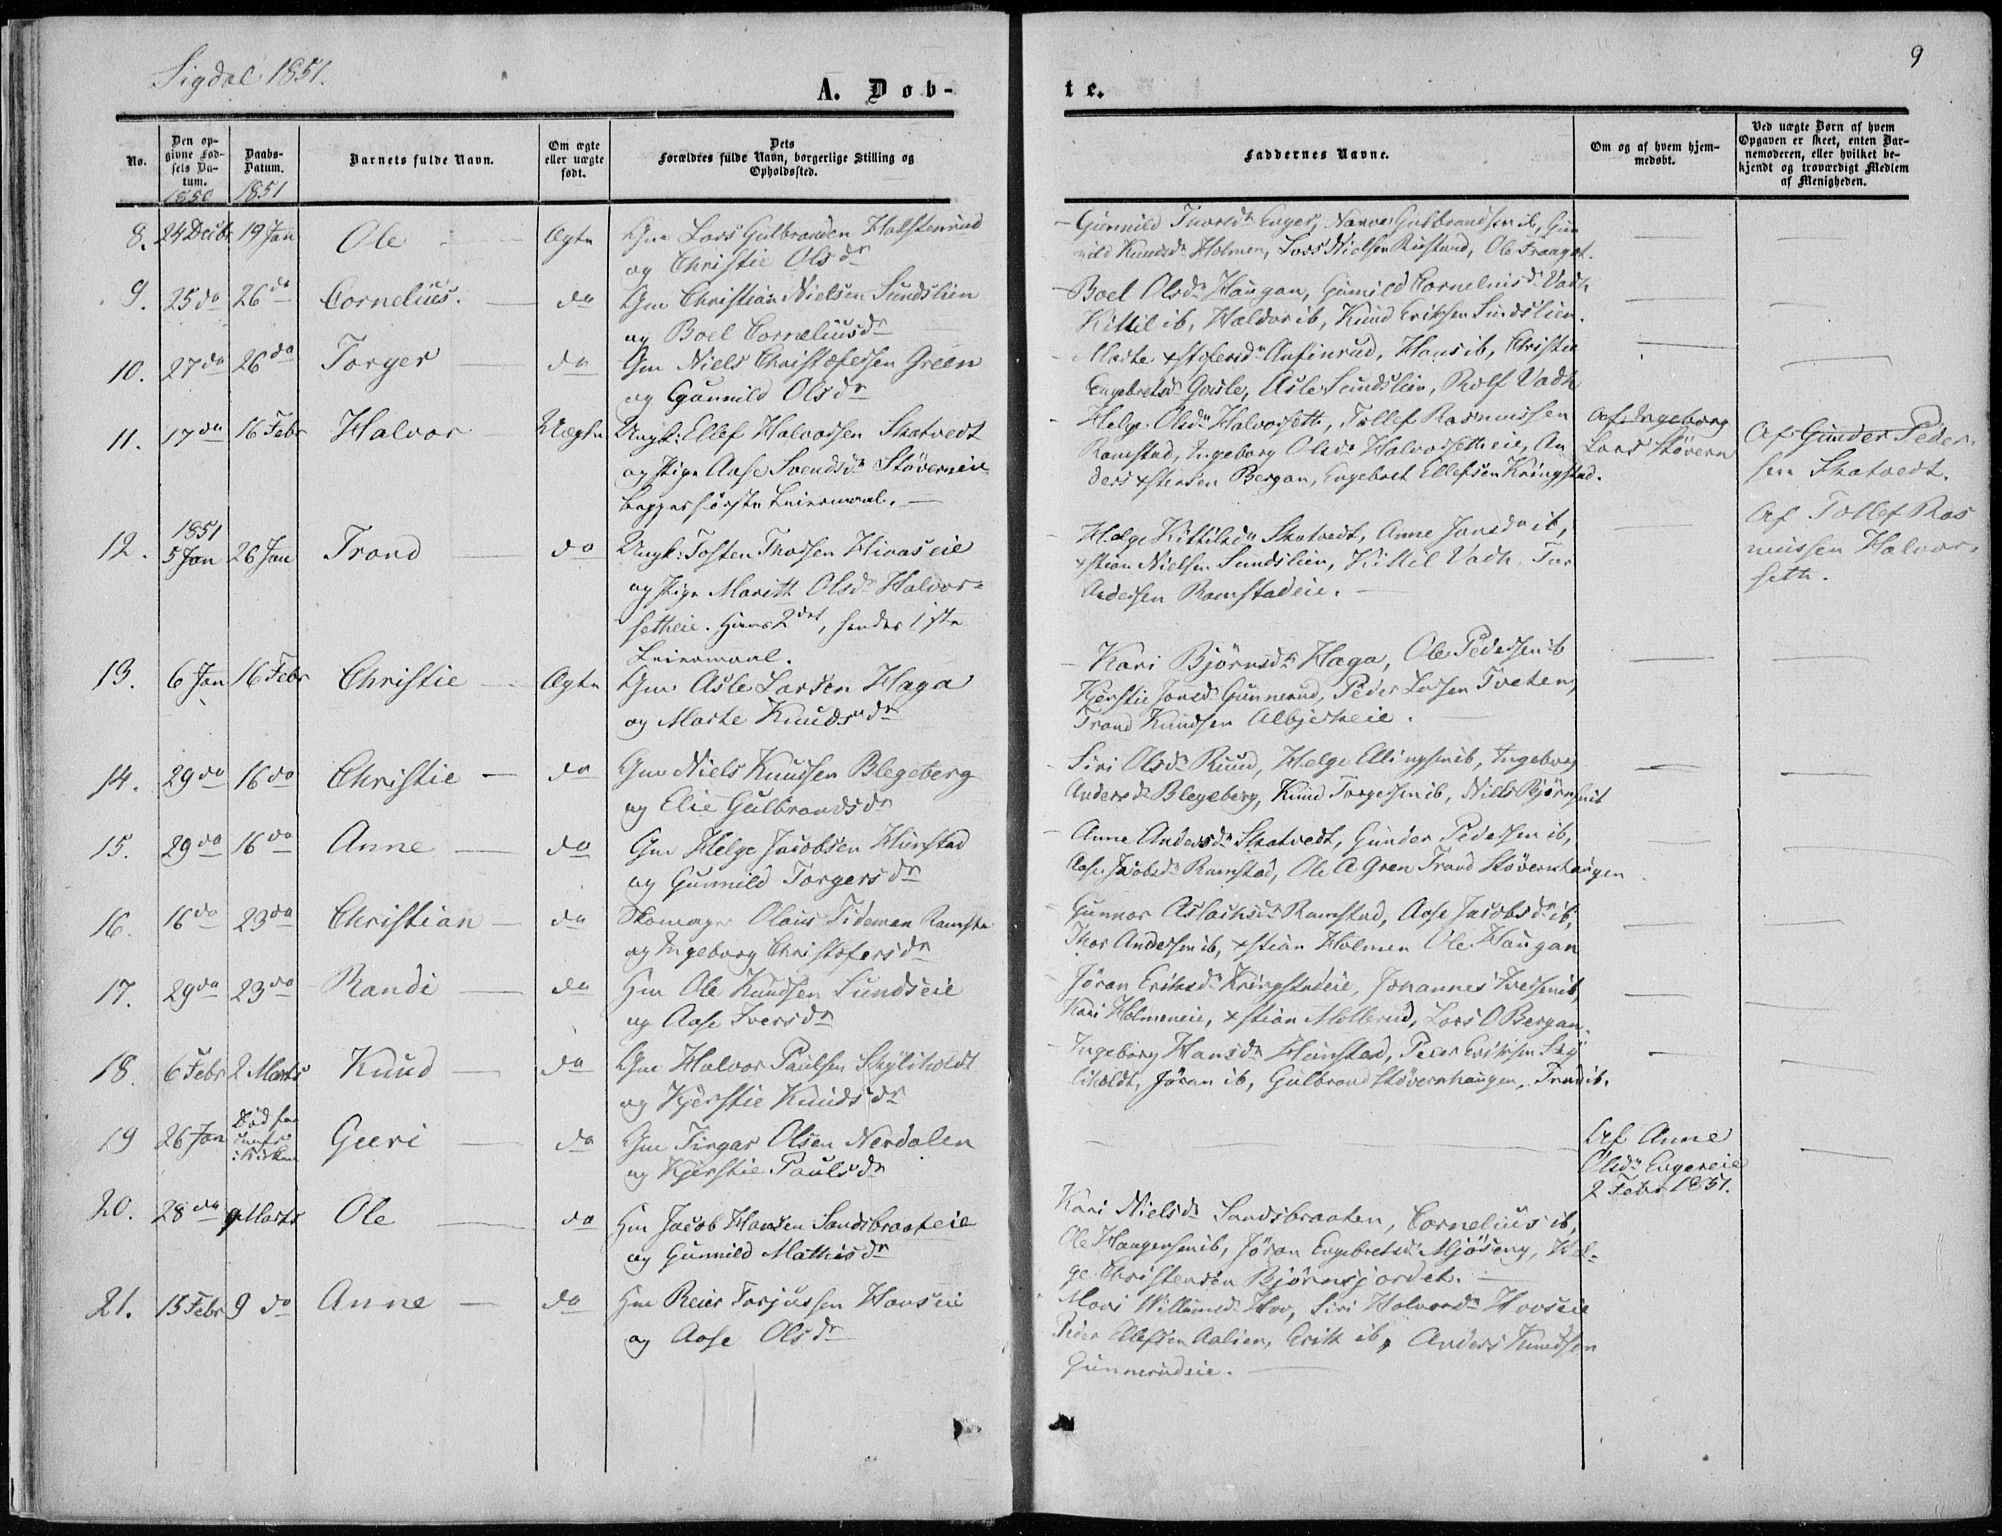 Sigdal 1851.
9
A. Døb-
te.
No.
Den op-
givne Fød-
sels Da-
tum.
1850
Daabs-
Datum.
1851
Barnets fulde Navn.
Om ægte
eller uægte
født.
Dets
Forældres fulde Navn, borgerlige Stilling og
Opholdssted.
Faddernes Navne.
Om og af hvem hjem-
medøbt.
Ved uægte Børn af hvem
Opgaven er skeet, enten Bar-
nemoderen, eller hvilket be-
kjendt og troværdigt Medlem
af Menigheden.
8. 24 Decbr 19 Jan Ole Ægte Gm Lars Gulbrandsen Halstenrud
og Christie Olsdr
Gunnild Enger, Narve Gulbrandsen ib, Gun
nild Knudsdr Holmen, Lars Nielsen Rustand, Ole Fraagot.
9. 25 do 26 do Cornelius. do Gm Christian Nielsen Sundslien
og Boel Corneliusdr
Boel Olsdr Haugan, Gunild Corneliusdr Vadh
Kittil ib, Haldor ib, Knud Eriksen Sundslien.
10. 27 do 26 do Torger do Gm Niels Christofersen Green
og Gunnild Olsdr
Marte xstofersdr Anfinrud, Hans ib, Christie
Engebretsdr Gusle, Asle Sundslien, Rolf Vadh
11. 17 do 16 Febr Halvor Uægte Ungk: Ellef Halvorsen Skatvedt
og Pige Aase Svendsdr Støverneie
begges første Leiermaal.
Helge Olsdr Halvorseth, Tollef Rasmussen
Ramstad, Ingeborg Olsdr Halvorsetheie, An
ders xstensen Bergan, Engebret Ellefsen Kringstad.
Af Ingeborg
Lars Støvern
Af Gunder Peder-
sen Skatvedt.
12. 1851
5 Jan 26 Jan Trond do Ungk: Tosten Thorsen Hivaseie
og Pige Maritt Olsdr Halvor-
setheie. Hans 2det, hendes 1ste
Leiermaal.
Helge Kittilsdr Skatvedt, Anne Jonsdr ib,
xstian Nielsen Sundslien, Kittil Vadh, Tor
Andersen Ramstadeie.
Af Tollef Ras
mussen Halvor-
seth.
13. 6 Jan 16 Febr Christie Ægte Gm Asle Larsen Haga
og Marte Knudsdr
Kari Bjørnsdr Haga, Ole Pedersen ib
Kjerstie Jonsdr Gunnerud, Peder Larsen Tveten,
Trond Knudsen Albjerkeie.
14. 29 do 16 do Christie do Gm Niels Knudsen Blegeberg
og Elie Gulbrandsdr
Siri Olsdr Ruud, Helge Ellingsen ib, Ingeborg
Andersdr Blegeberg, Knud Torgersen ib, Niels Bjørnsen ib
15. 29 do 16 do Anne do Gm Helge Jacobsen Hunstad
og Gunnild Torgersdr
Anne Andersdr Skatvedt, Gunder Pedersen ib,
Aase Jacobsdr Ramstad, Ole A Gren Trond Støvernhaugen
16. 16 do 23 do Christian do Skomager Olaus Tideman Ramsta
og Ingeborg Christofersdr
Gunnor Aslaksdr Ramstad, Aase Jacobsdr ib,
Thor Andersen ib, xstian Holmen Ole Haugan
17. 29 do 23 do Randi do Hm Ole Knudsen Sundseie
og Aase Iversdr
Jøran Eriksdr Kringstadeie, Johannes Iversen ib,
Kari Holmeneie, xstian Mollerud, Lars O Bergan.
18. 6 Febr 2 Marts Knud do Gm Halvor Paulsen Skyliholdt
og Kjerstie Knudsdr
Ingeborg Hansdr Hunstad, Peder Eriksen Sky
liholdt, Jøran ib, Gulbrand Støvernhaugen, Trond ib.
19 26 Jan Død før
i Kirken Guri do Gm Torgar Olsen Nerdalen
og Kjerstie Paulsdr
Af Anne
Olsdr Engereie
2 Febr 1851.
20. 28 do 9 Marts Ole do Hm Jacob Hansen Sandsbraateie
og Gunnild Mathisdr
Kari Nielsdr Sandsbraaten, Cornelius ib,
Ole Haagensen ib, Jøran Engebretsdr Mjøseng, Hel-
ge Christensen Bjørnsjordet.
21. 15 Febr 9 do Anne do Hm Reier Torjussen Hovseie
og Aase Olsdr
Mari Willumsdr Hov, Siri Halvorsdr Hovseie
Peder Olefsen Aalien, Erik ib, Anders Knudsen
Gunnerudeie.